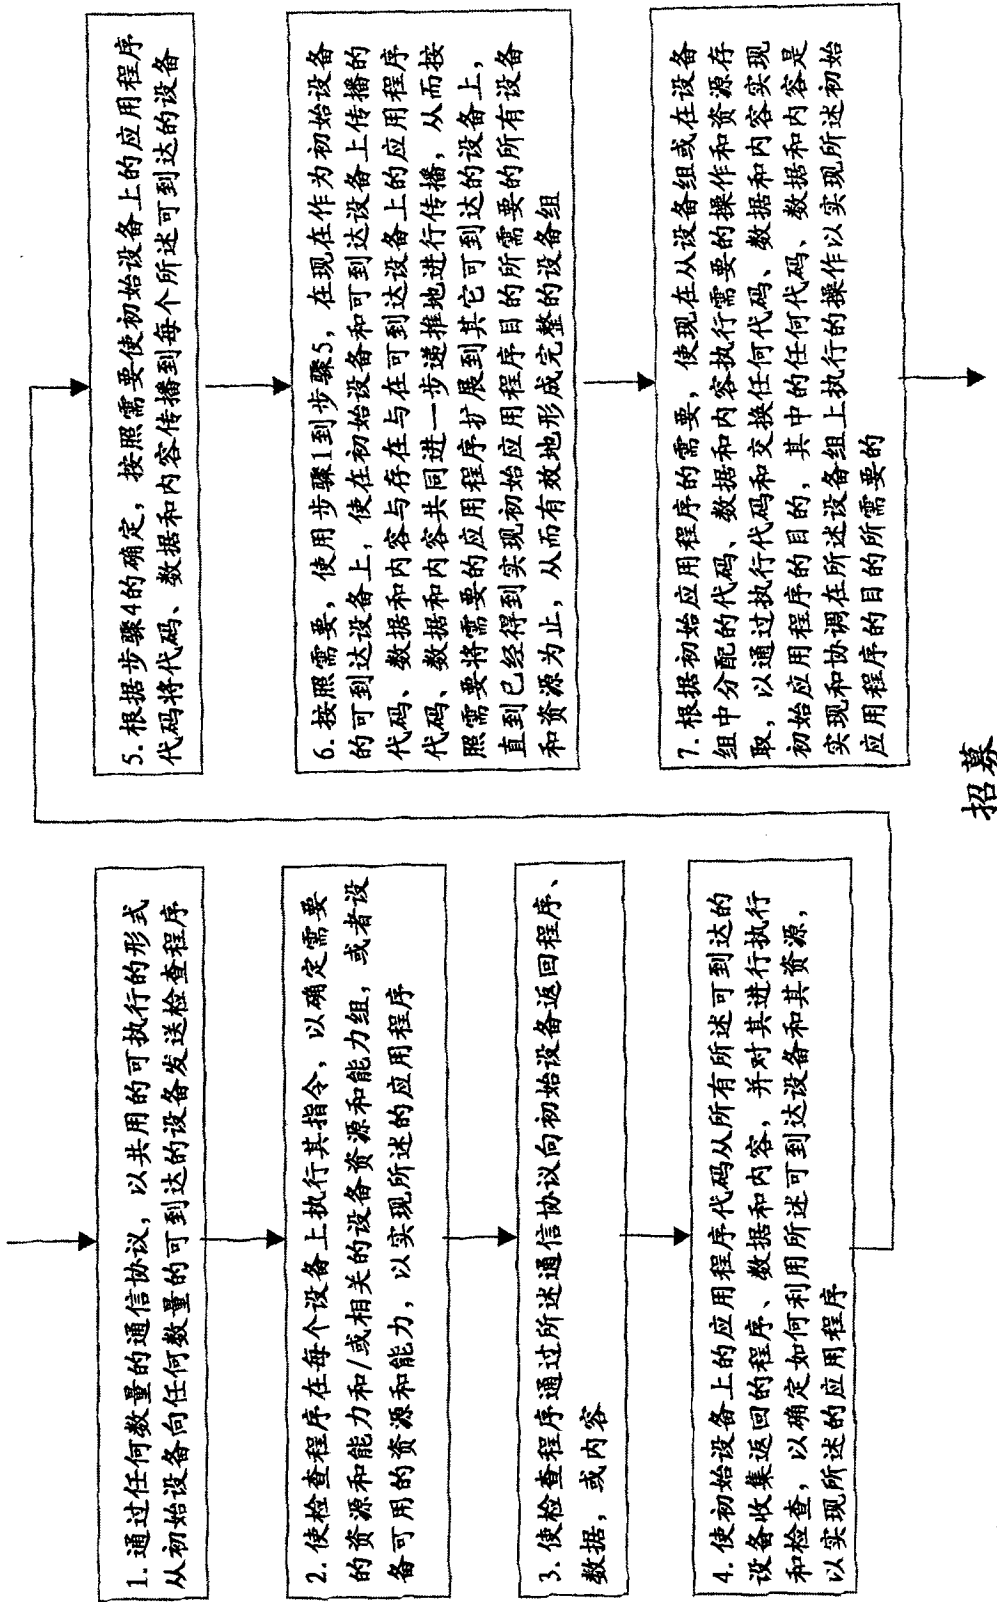 1. 通过任何数量的通信协议，以共用的可执行的形式
从初始设备向任何数量的可到达的设备发送检查程序
2. 使检查程序在每个设备上执行其指令，以确定需要
的资源和能力和/或相关的设备资源和能力组，或者设
备可用的资源和能力，以实现所述的应用程序
3. 使检查程序通过所述通信协议向初始设备返回程序、
数据，或内容
4. 使初始设备上的应用程序代码从所有所述可到达的
设备收集返回的程序、数据和内容，并对其进行执行
和检查，以确定如何利用所述可到达设备和其资源，
以实现所述的应用程序
5. 根据步骤4的确定，按照需要使初始设备上的应用程序
代码将代码、数据和内容传播到每个所述可到达的设备
6. 按照需要，使用步骤1到步骤5，在现在作为初始设备
的可到达设备上，使在初始设备和可到达设备上传播的
代码、数据和内容与存在与在可到达设备上的应用程序
代码、数据和内容共同进一步递推地进行传播，从而按
照需要将需要的应用程序扩展到其它可到达的设备上，
直到已经得到实现初始应用程序目的所需要的所有设备
和资源为止，从而有效地形成完整的设备组
7. 根据初始应用程序的需要，使现在从设备组或在设备
组中分配的代码、数据和内容执行需要的操作和资源存
取，以通过执行代码和交换任何代码、数据和内容实现
初始应用程序的目的，其中的任何代码、数据和内容是
实现和协调在所述设备组上执行的操作以实现所述初始
应用程序的目的所需要的
招募